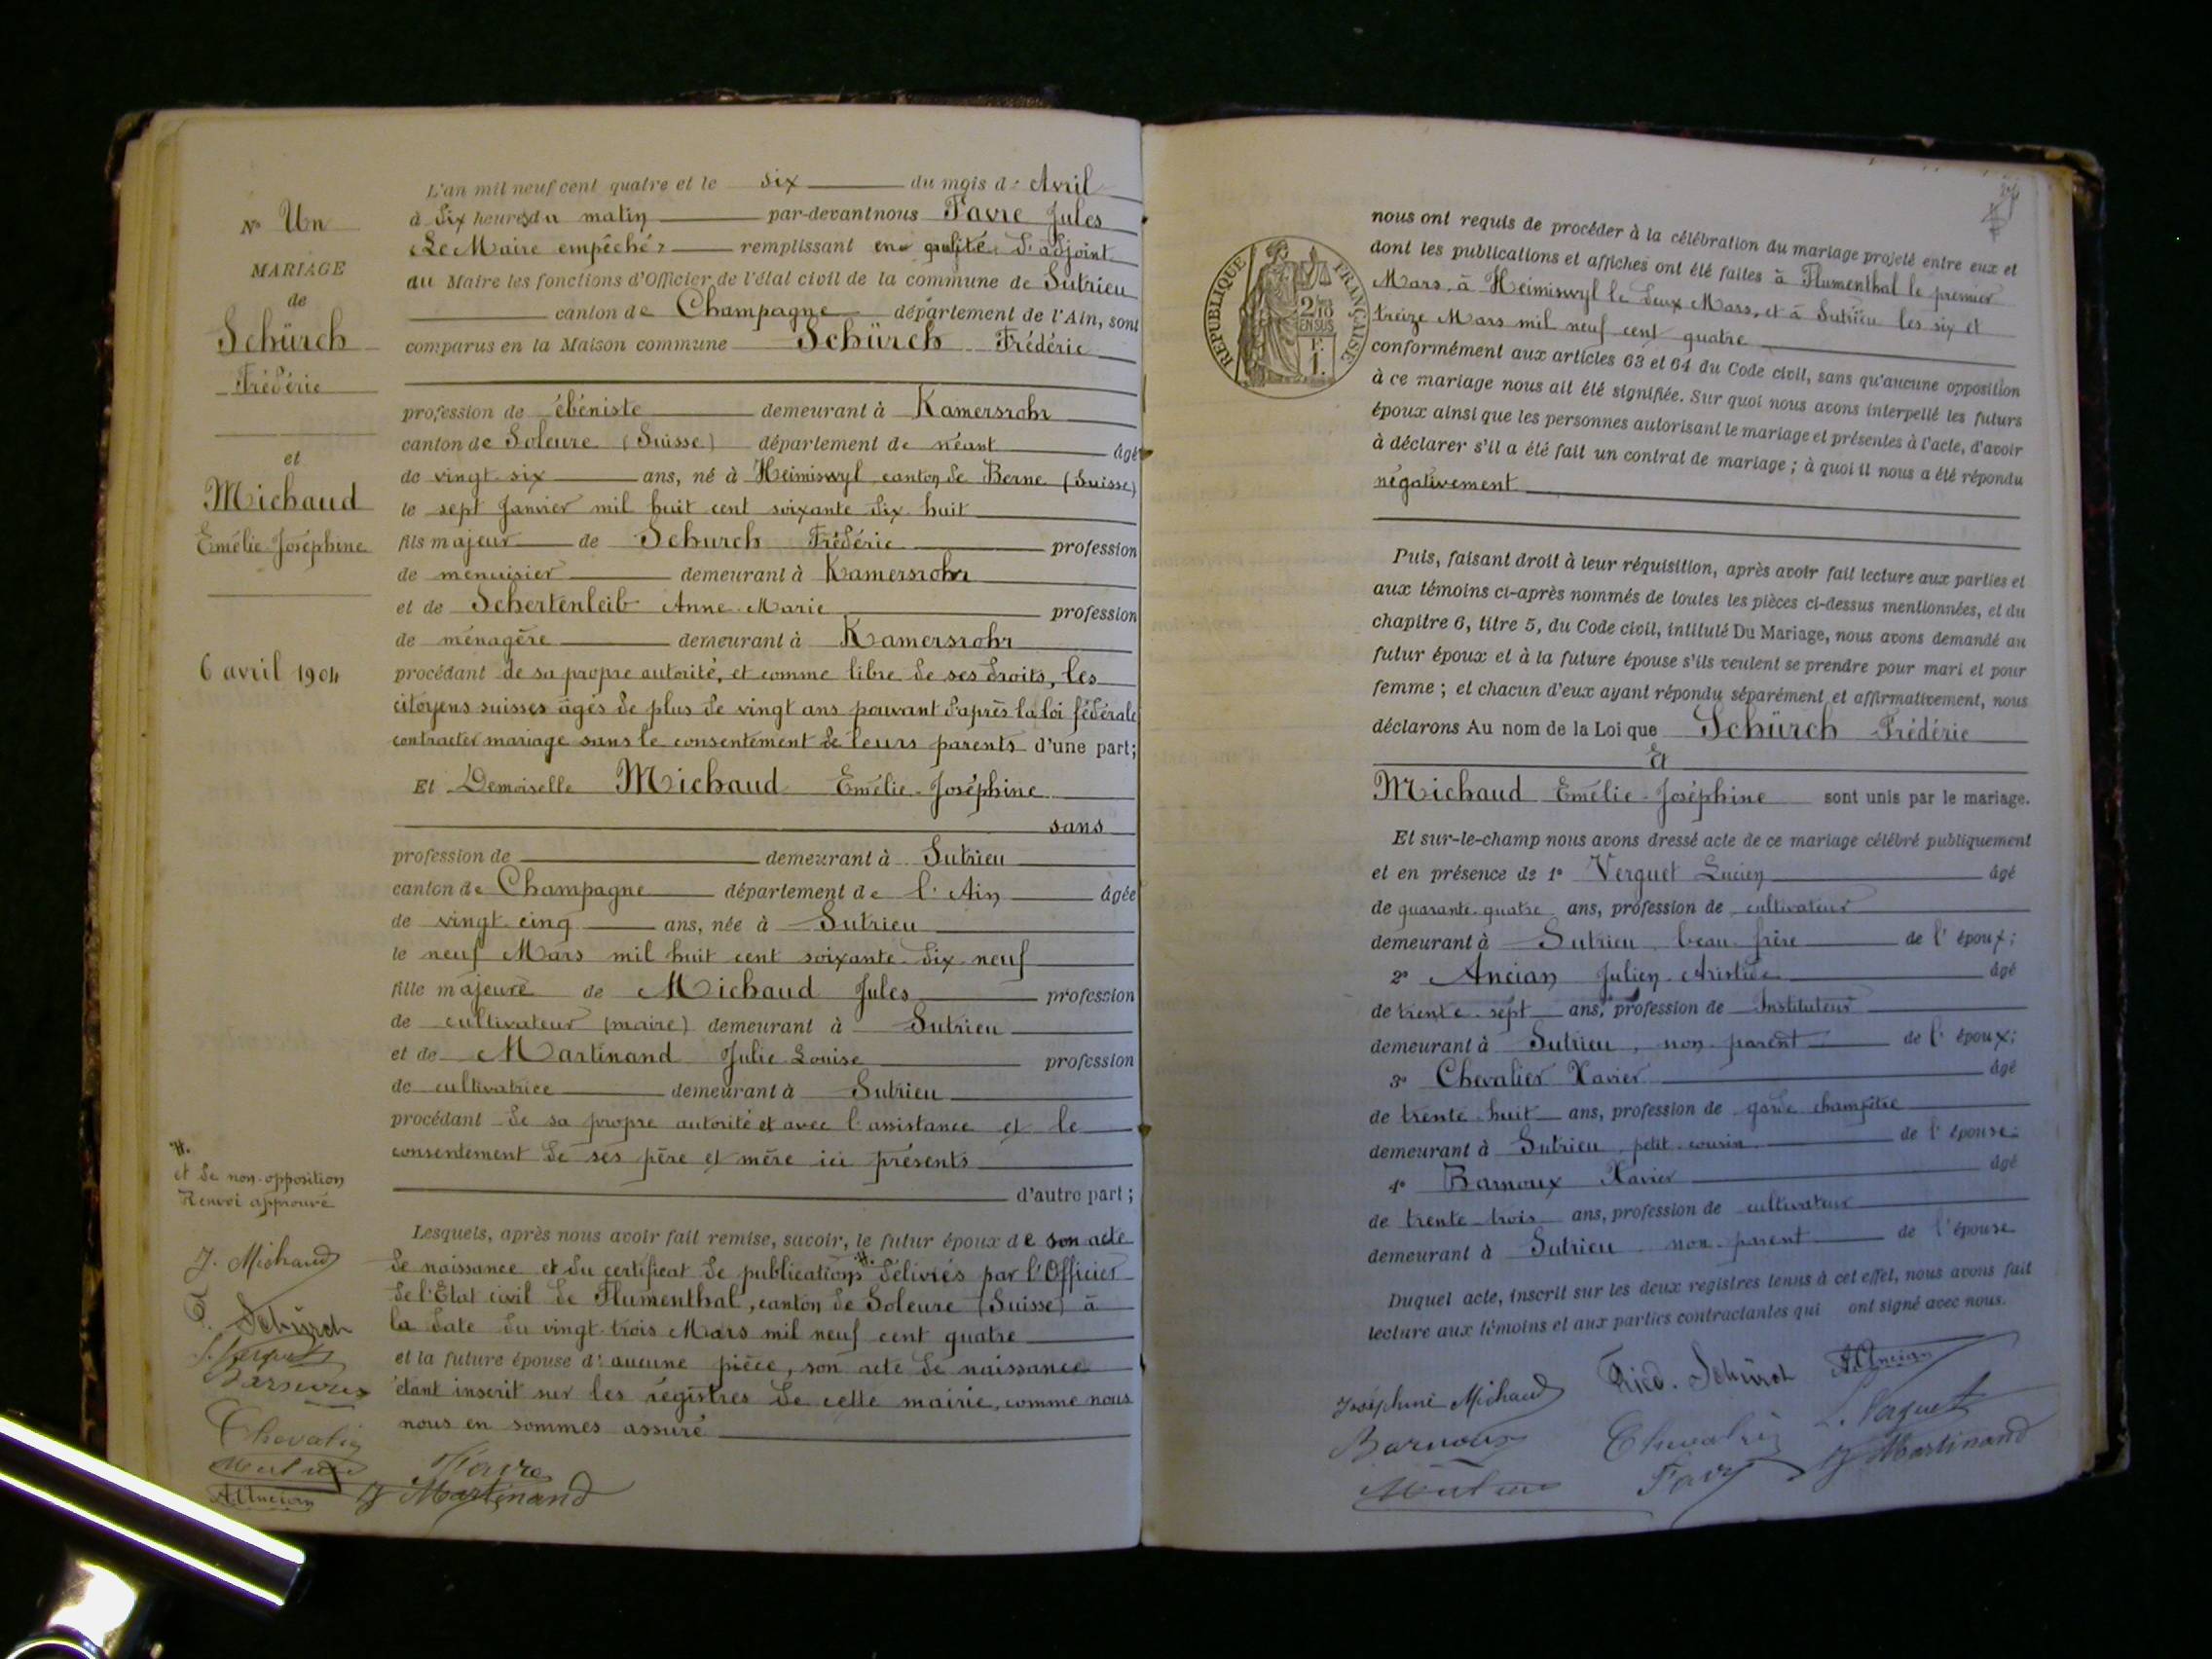 N° Un
MARIAGE
de
Schürch
Frédéric
et
Michaud
Emélie-Joséphine
6 avril 1904
H.
et de non-opposition
Renvoi approuvé
J. Michaud
F. Schürch
Barnoux
Chevalier
A Ancian
L'an mil neuf cent quatre et le six du mois d' Avril
à dix heures du matin par-devant nous Favre Jules
Le Maire empêché, remplissant en qualité d'adjoint
au Maire les fonctions d'Officier de l'état civil de la commune de Sutrieu
canton de Champagne département de l'Ain, sont
comparus en la Maison commune Schürch Frédéric
profession de ébéniste demeurant à Kamersrohr
canton de Soleure (Suisse) département de néant âgé
de vingt-six ans, né à Heimiswyl canton de Berne (Suisse)
le sept Janvier mil huit cent soixante-dix-huit
fils majeur de Schurch Frédéric profession
de menuisier demeurant à Kamersrohr
et de Schertenleib Anne-Marie profession
de ménagère demeurant à Kamersrohr
procédant de sa propre autorité, et comme libre de ses droits, les
citoyens suisses âgés de plus de vingt ans pouvant d'après la loi fédérale
contracter mariage sans le consentement de leurs parents d'une part;
Et Demoiselle Michaud Emélie-Joséphine
sans
profession de demeurant à Sutrieu
canton de Champagne département de l'Ain âgée
de vingt-cinq ans, née à Sutrieu
le neuf Mars mil huit cent soixante-dix-neuf
fille majeure de Michaud Jules profession
de cultivateur (maire) demeurant à Sutrieu
et de Martinand Julie Louise profession
de cultivatrice demeurant à Sutrieu
procédant de sa propre autorité et avec l'assistance et le
consentement de ses père et mère ici présents
d'autre part;
Lesquels, après nous avoir fait remise, savoir, le futur époux de son acte
de naissance et du certificat de publications H. délivrés par l'Officier
de l'Etat civil de Flumenthal, canton de Soleure (Suisse) à
la date du vingt-trois Mars mil neuf cent quatre
et la future épouse d'aucune pièce, son acte de naissance
étant inscrit sur les régistres de cette mairie, comme nous
nous en sommes assuré
Favre
J Martinand
REPUBLIQUE FRANÇAISE
2/10
EN SUS
nous ont requis de procéder à la célébration du mariage projeté entre eux et
dont les publications et affiches ont été faites à Flumenthal le premier
Mars, à Heimiswyl le deux Mars, et à Sutrieu les six et
treize Mars mil neuf cent quatre
conformément aux articles 63 et 64 du Code civil, sans qu'aucune opposition
à ce mariage nous ait été signifiée. Sur quoi nous avons interpellé les futurs
époux ainsi que les personnes autorisant le mariage et présentes à l'acte, d'avoir
à déclarer s'il a été fait un contrat de mariage ; à quoi il nous a été répondu
négativement
Puis, faisant droit à leur réquisition, après avoir fait lecture aux parties et
aux témoins ci-après nommés de toutes les pièces ci-dessus mentionnées, et du
chapitre 6, titre 5, du Code civil, intitulé Du Mariage, nous avons demandé au
futur époux et à la future épouse s'ils veulent se prendre pour mari et pour
femme ; et chacun d'eux ayant répondu séparément et affirmativement, nous
déclarons Au nom de la Loi que Schürch Frédéric
Et
Michaud Emélie-Joséphine sont unis par le mariage.
Et sur-le-champ nous avons dressé acte de ce mariage célébré publiquement
et en présence de 1° Verguet Lucien âgé
de quarante-quatre ans, profession de cultivateur
demeurant à Sutrieu, beau-frère de l'époux;
2° Ancian Julien-Aristide âgé
de trente-sept ans, profession de Instituteur
demeurant à Sutrieu, non parent de l'époux;
3° Chevalier Xavier âgé
de trente-huit ans, profession de garde champêtre
demeurant à Sutrieu petit-cousin de l'épouse
4° Barnoux Xavier âgé
de trente-trois ans, profession de cultivateur
demeurant à Sutrieu non-parent de l'épouse
Duquel acte, inscrit sur les deux registres tenus à cet effet, nous avons fait
lecture aux témoins et aux parties contractantes qui ont signé avec nous.
Joséphine Michaud Fried. Schürch A Ancian
Barnoux Chevalier L. Verguet
Favre J Martinand